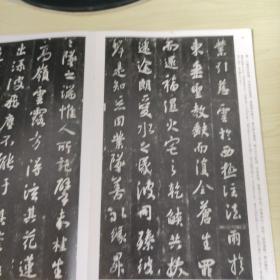 業引慈雲於西極注法雨於
東垂聖教缺而復全蒼生罪
而還福濕火宅之乾燄共拔
迷途朗愛水之昏波同臻彼
岸是知惡因業墜善以緣昇
墜之端惟人所託譬夫桂生
高嶺雲露方得泫其花蓮
出淥波飛塵不能